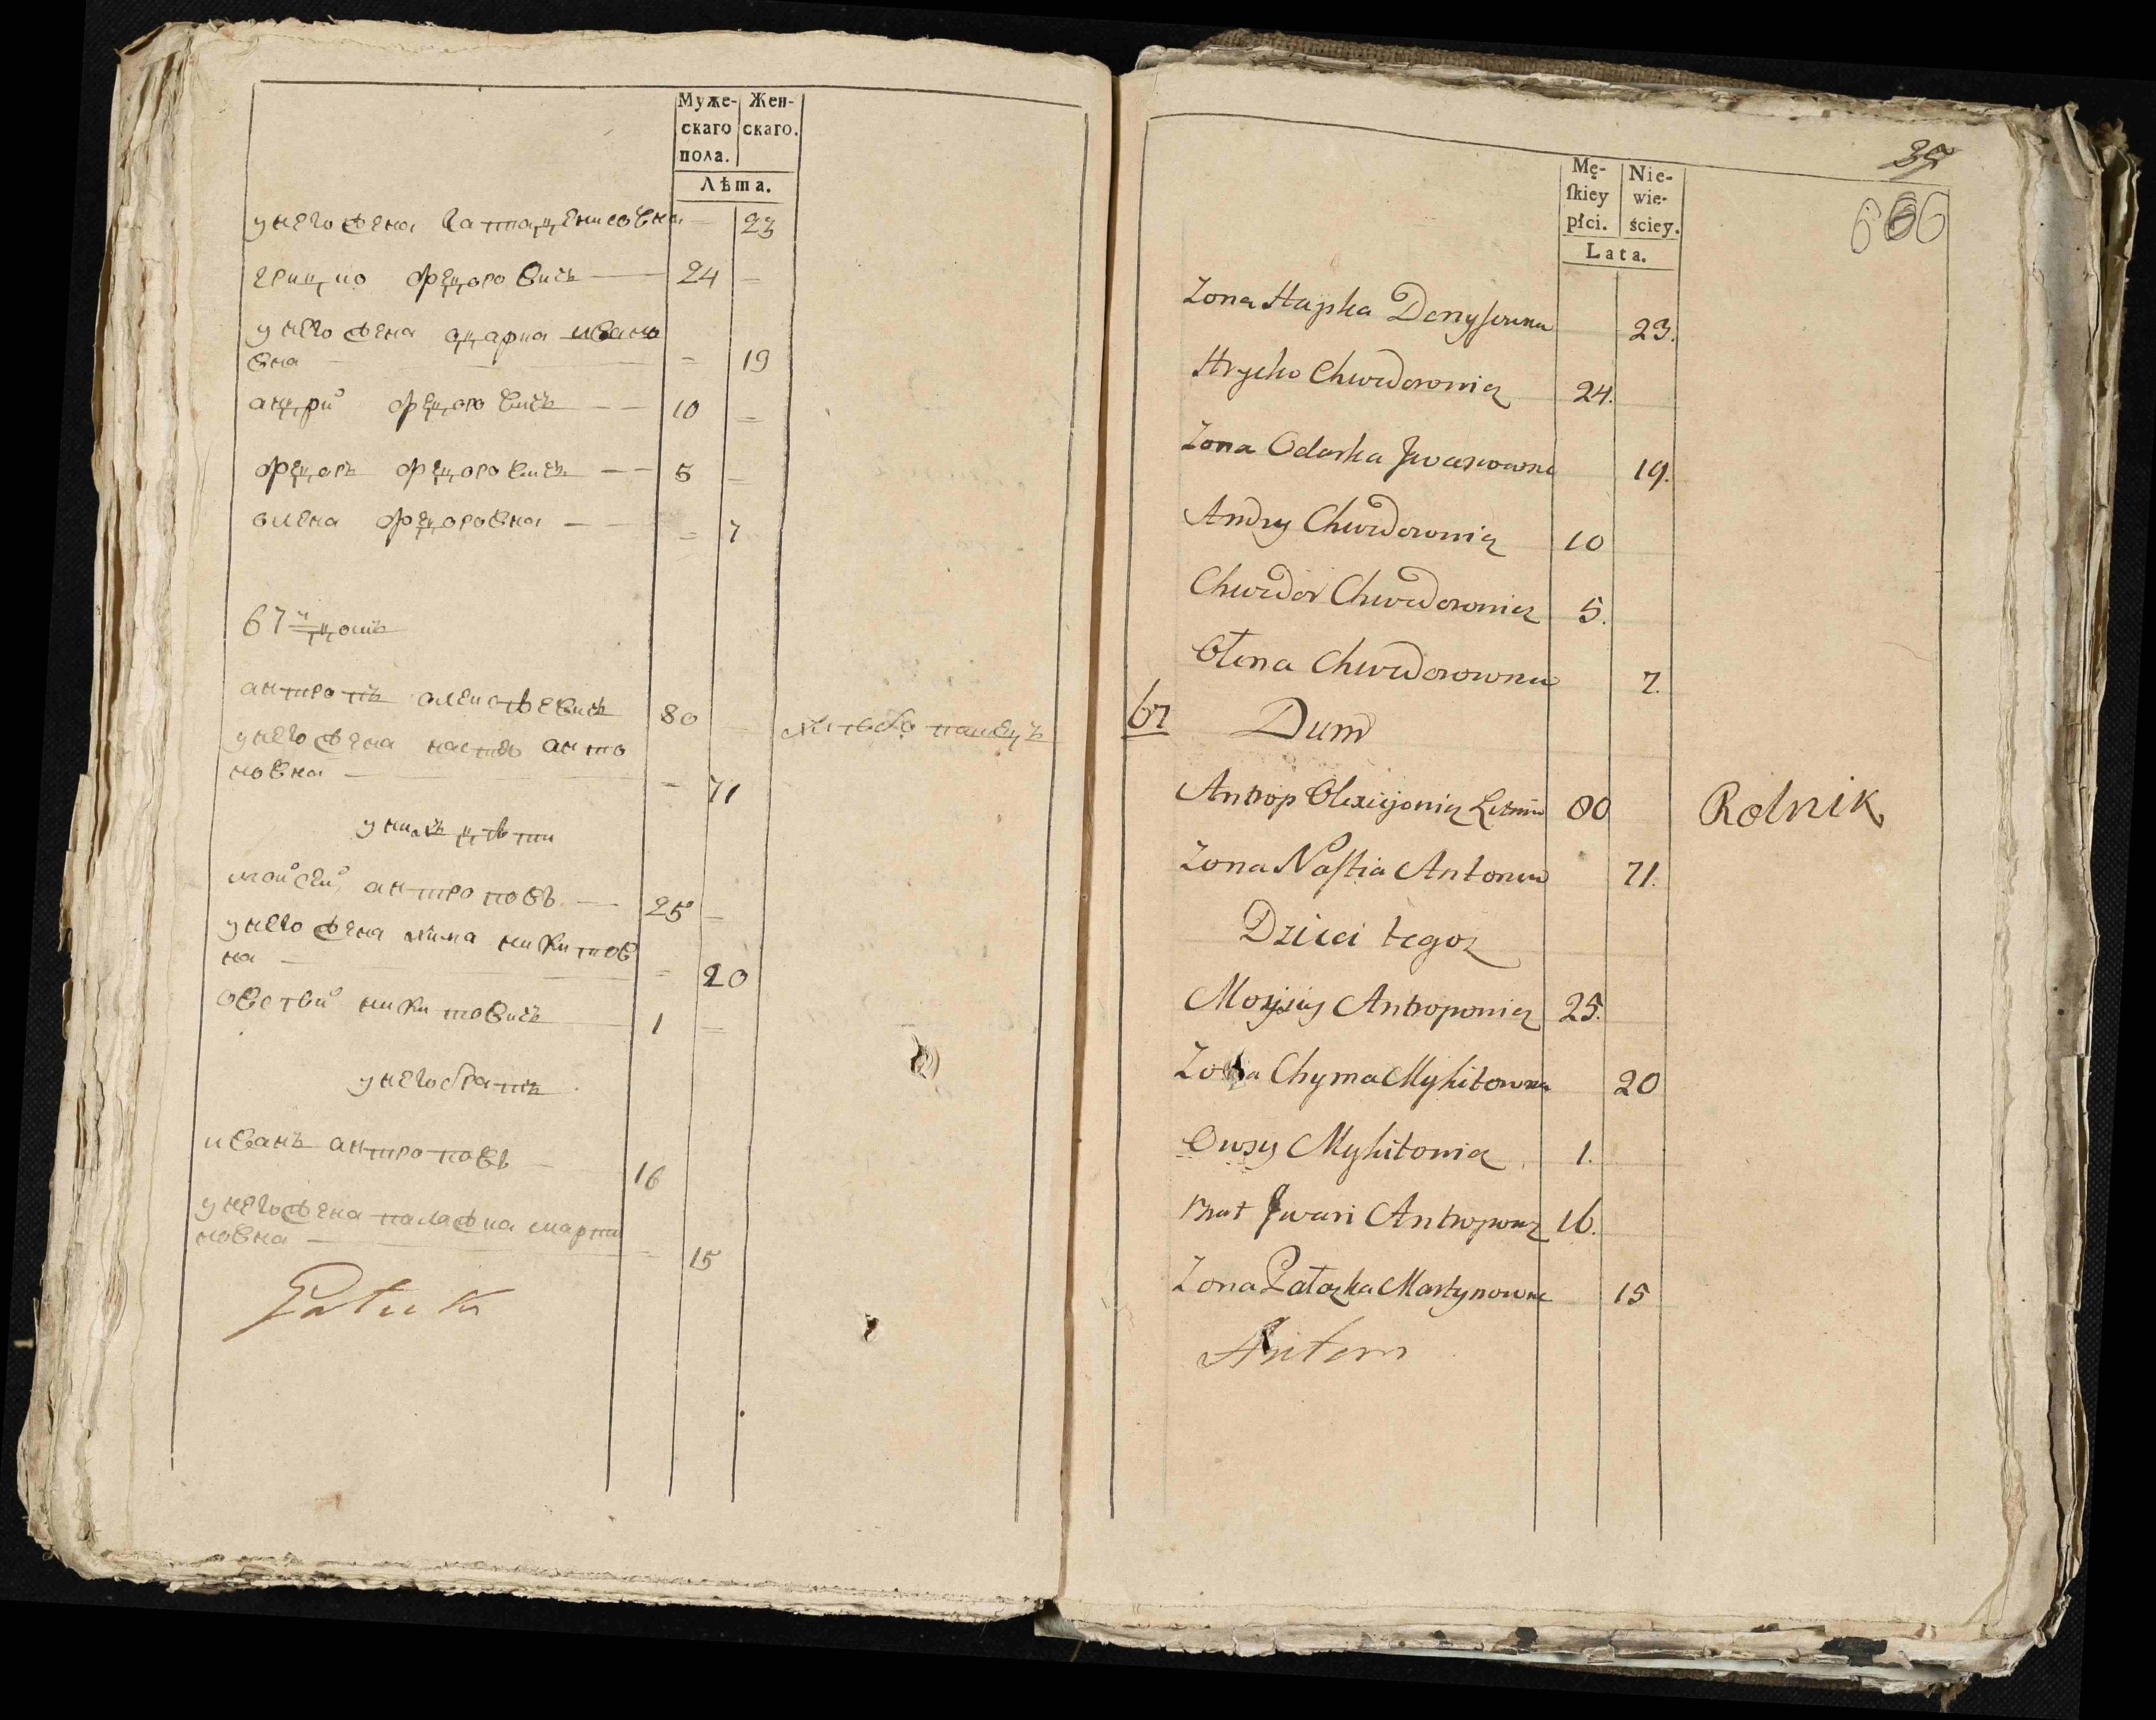 Муже- Жен-
скаго скаго.
пола.
Лѣта.
унего жена гапка денисовна — 23
грицко федоровичъ — 24 —
унего жена одарка ивано
вна — 19
андрій федоровичъ — 10 —
федоръ федоровичъ — 5 —
олена федоровна — 7
67й домъ
антропъ олексѣевичъ 80 — хлѣбо пашецъ
унего жена настя анто
новна — 71
унихъ дѣти
мойсій антроповъ — 25 —
унего жена хима никитов
на — 20
овсѣй никитовичъ 1 —
унего братъ
иванъ антроповъ — 16
унего жена палажка марти
новна — 15
35
666
Mę- Nie-
ſkiey wie-
płci. ściey.
Lata.
Zona Hapka Denyſowna 23.
Hrycko Chwedorowicz 24.
Zona Odarka Jwanowna 19.
Andry Chwedorowicz 10
Chwedor Chwedorowicz 5.
Ołena Chwedorowna 7.
67 Dum
Antrop Olexiyowicz 80 Rolnik
Zona Naſtia Antonow 71.
Dzieci tegoz
Moyſiy Antropowicz 25.
Zona Chyma Mykitowna 20
Owsiy Mykitowicz 1.
Brat Jwan Antropowicz 16.
Zona Pałazka Martynowna 15